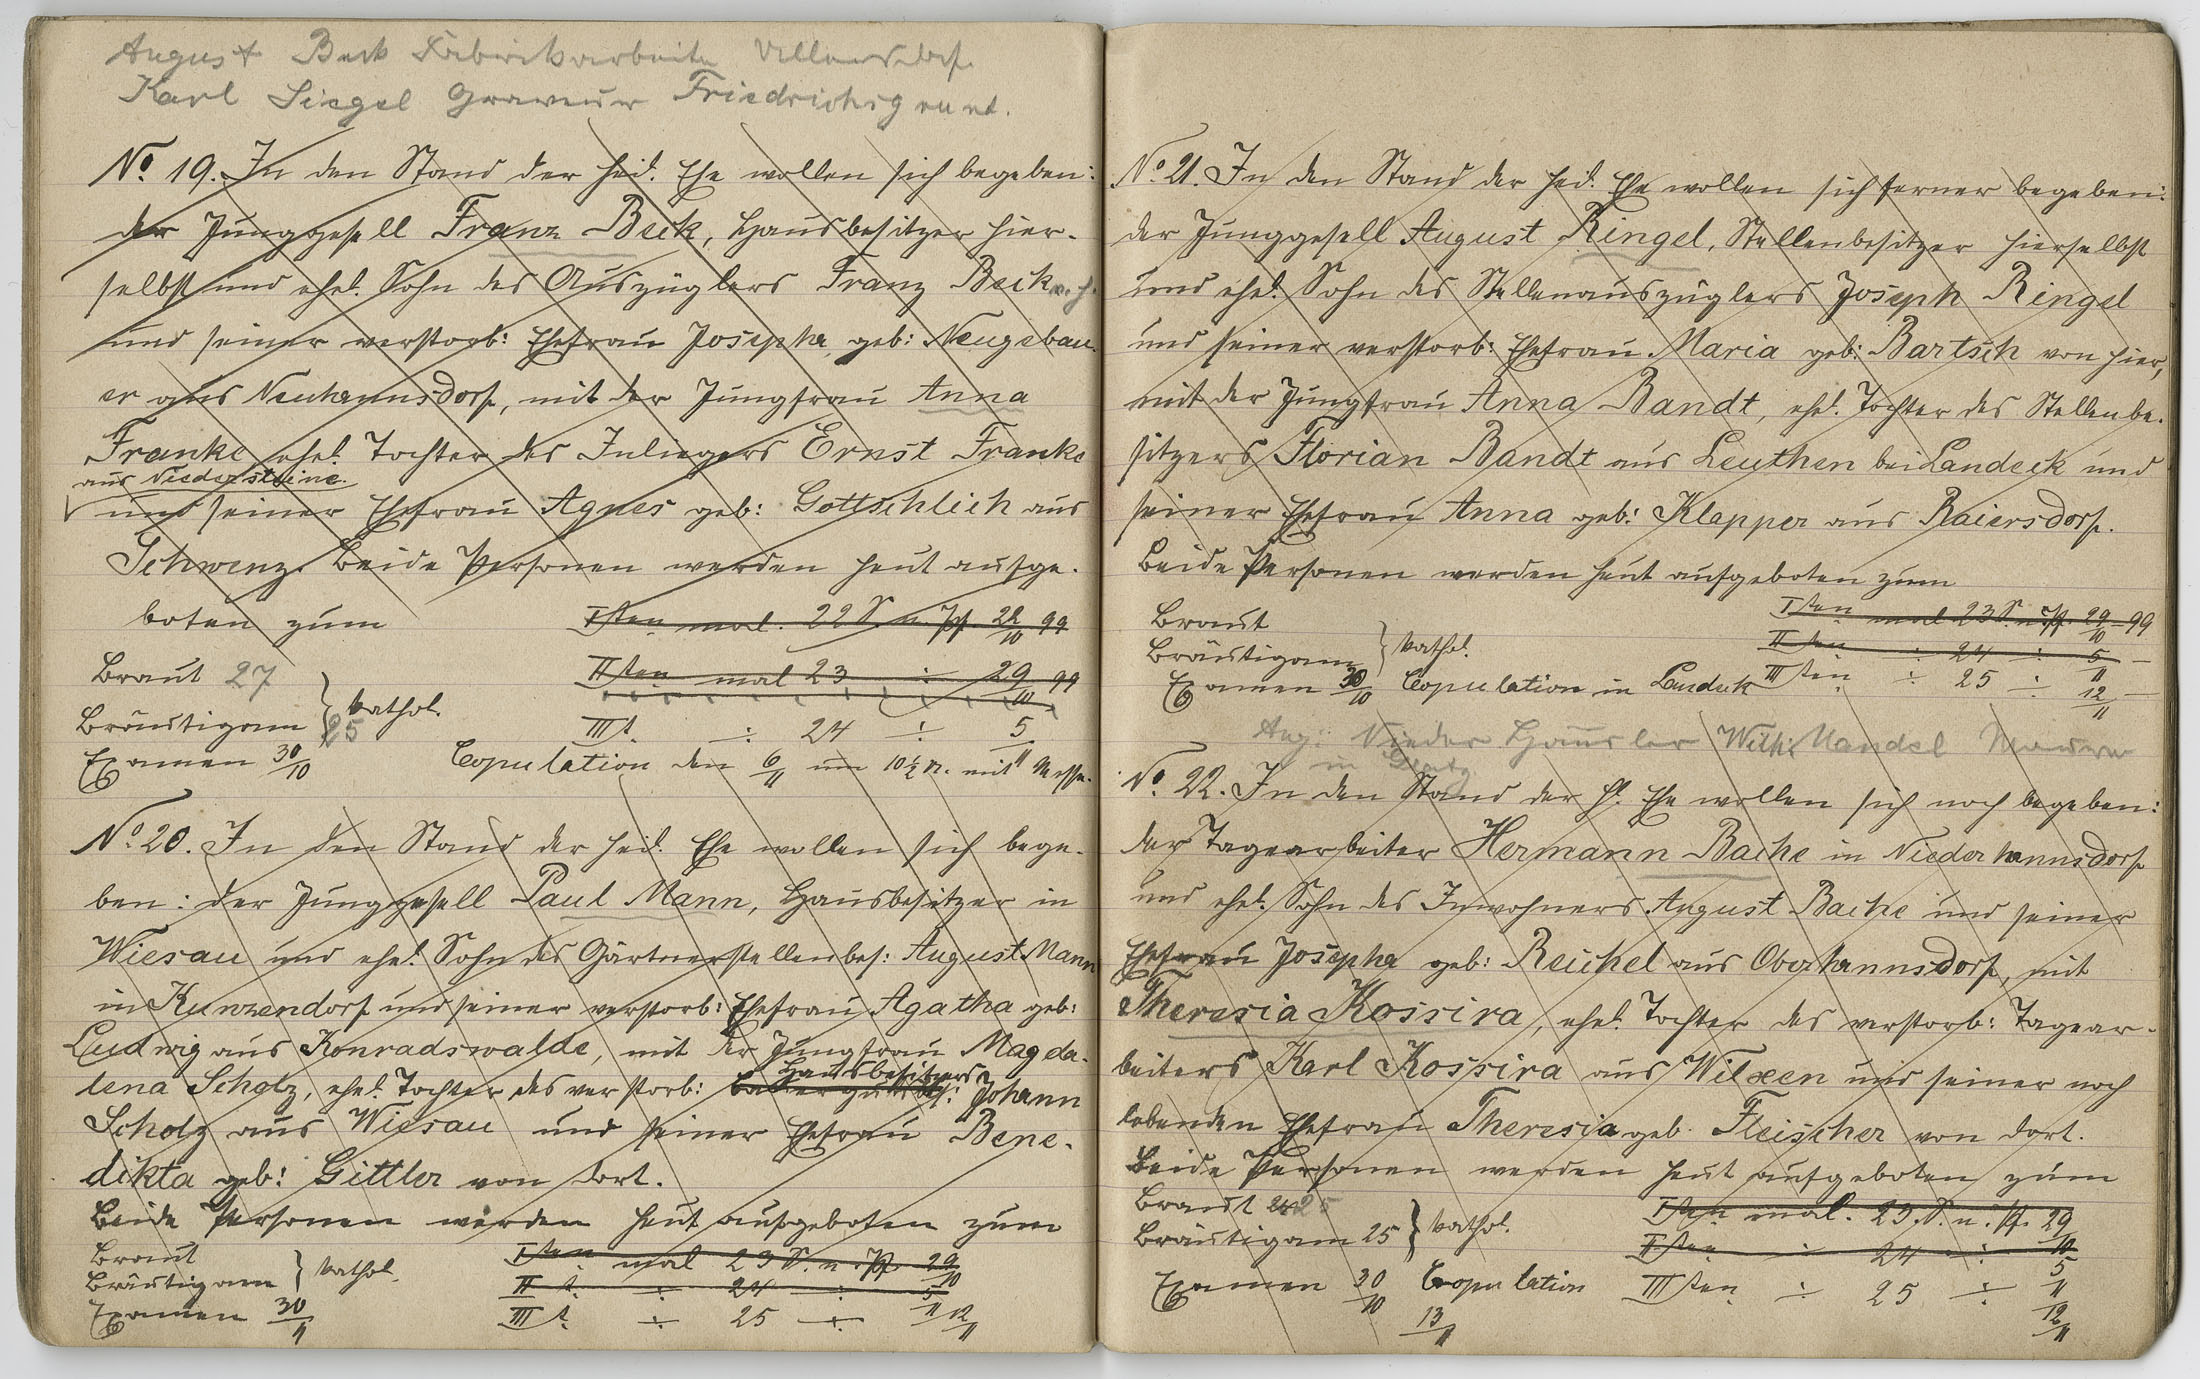 August Beck Fabrikarbeiter Ullersdorf
Karl Siegel Graveur Friedrichsgrund.
No. 19. In den Stand der heil. Ehe wollen sich begeben:
der Junggesell Franz Beck, Hausbesitzer hier-
selbst und ehel. Sohn des Auszüglers Franz Beck v. h.
und seiner verstorb: Ehefrau Josepha geb: Neugebau-
er aus Neuhannsdorf, mit der Jungfrau Anna
Franke ehel. Tochter des Inliegers Ernst Franke
aus Niedersteine.
und seiner Ehefrau Agnes geb: Gottschlich aus
Schwenz. Beide Personen werden heut aufge-
boten zum Isten mal. 22 S. n. Pf. 22/10 99
Braut 27 IIten mal 23 ÷ 29/10 99
Bräutigam 25 } kathol. IIIt. ÷ 24 ÷ 5/11
Examen 30/10 Copulation den 6/11 um 10½ U. mit Messe.
No. 20. In den Stand der heil. Ehe wollen sich bege-
ben: der Junggesell Paul Mann, Hausbesitzer in
Wiesau und ehel. Sohn des Gärtnerstellenbes: August Mann
in Kunzendorf und seiner verstorb: Ehefrau Agatha geb:
Ludwig aus Konradswalde, mit der Jungfrau Magda-
Hausbesitzers
lena Scholz, ehel. Tochter des verstorb: Bauergutsbes: Johann
Scholz aus Wiesau und seiner Ehefrau Bene-
dikta geb: Gittler von dort.
Beide Personen werden heut aufgeboten zum
Braut Isten mal 23 S. n. Pf. 29/10
Bräutigam } kathol. II t. ÷ 24 ÷ 5/11
Examen 30/11 III t. ÷ 25 ÷ 12/11
No. 21. In den Stand der heil. Ehe wollen sich ferner begeben:
der Junggesell August Ringel, Stellenbesitzer hierselbst
und ehel. Sohn des Stellenauszüglers Joseph Ringel
und seiner verstorb: Ehefrau Maria geb: Bartsch von hier,
mit der Jungfrau Anna Bandt, ehel. Tochter des Stellenbe-
sitzers Florian Bandt aus Leuthen bei Landeck und
seiner Ehefrau Anna geb: Klapper aus Raiersdorf.
Beide Personen werden heut aufgeboten zum
Braut Isten mal 23 S. n. Pf. 29/10 99
Bräutigam } kathol. II ten ÷ 24 ÷ 5/11 —
Examen 30/10 Copulation in Landeck III ten ÷ 25 ÷ 12/11 —
Aug: Nieder Häusler Wilh: Mandel Maurer
in Glatz
No. 22. In den Stand der h. Ehe wollen sich noch begeben:
der Tagearbeiter Hermann Bache in Niederhannsdorf
und ehel. Sohn des Inwohners August Bache und seiner
Ehefrau Josepha geb: Reichel aus Oberhannsdorf, mit
Theresia Kossira, ehel. Tochter des verstorb: Tagear-
beiters Karl Kossira aus Wilxen und seiner noch
lebenden Ehefrau Theresia geb. Fleischer von dort.
Beide Personen werden heut aufgeboten zum
Braut 25 Isten mal. 23. S. n. Pf. 29/10
Bräutigam 25 } kathol. II ten ÷ 24 ÷ 5/11
Examen 30/10 Copulation 13/11 III ten ÷ 25 ÷ 12/11